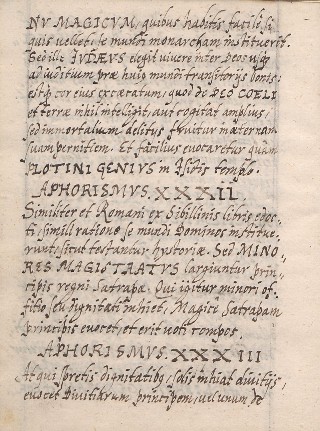 NV MAGICVM, quibus habitis facile, si
quis vellet, se mundi monarcham instituerit.
Sed ille IVDÆVS elegit vivere inter Deos usq̃
ad iudicium præ huius mundi transitorijs bonis:
estq̃ cor eius excæcatum, quod de DEO COELI
et terræ nihil intelligit, aut cogitat amplius,
sed immortalium delitijs fruitur in æternam
suam perniciem. Et facilius evocaretur quàm
PLOTINI GENIVS in Isidis templo.
APHORISMVS. XXXII.
Similiter et Romani ex Sibillinis libris edoc-
ti, simili ratione se mundi Dominos institue-
runt, sicut testantur hystoriæ. Sed MINO-
RES MAGISTRATVS largiuntur prin-
cipis regni Satrapæ. Qui igitur minori of-
ficio seu dignitati inhiet, Magicè Satrapam
principis evocet, et erit voti compos.
APHORISMVS. XXXIII
At qui spretis dignitatibq, solis inhiat divitijs,
evocet Divitiarum principem, vel unum de